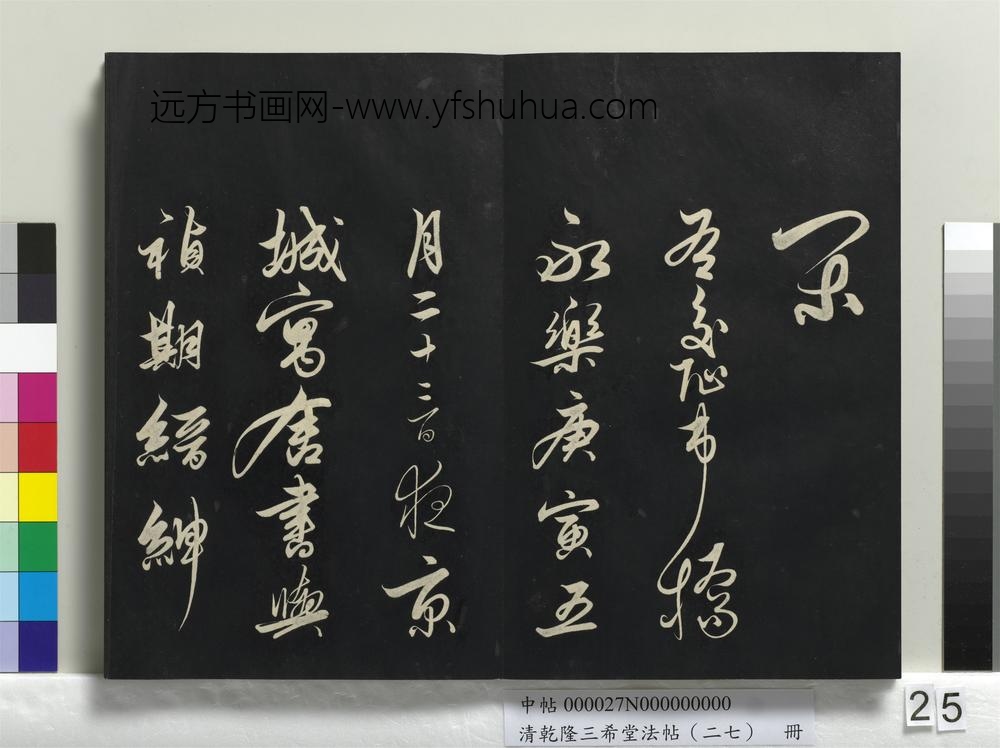 远方书画网-www.yfshuhua.com
閑
右交阯市橋
永樂庚寅五
月二十三日夜京
城寓舍書與
禎期縉紳
中帖 000027N000000000
清乾隆三希堂法帖（二七） 冊
25